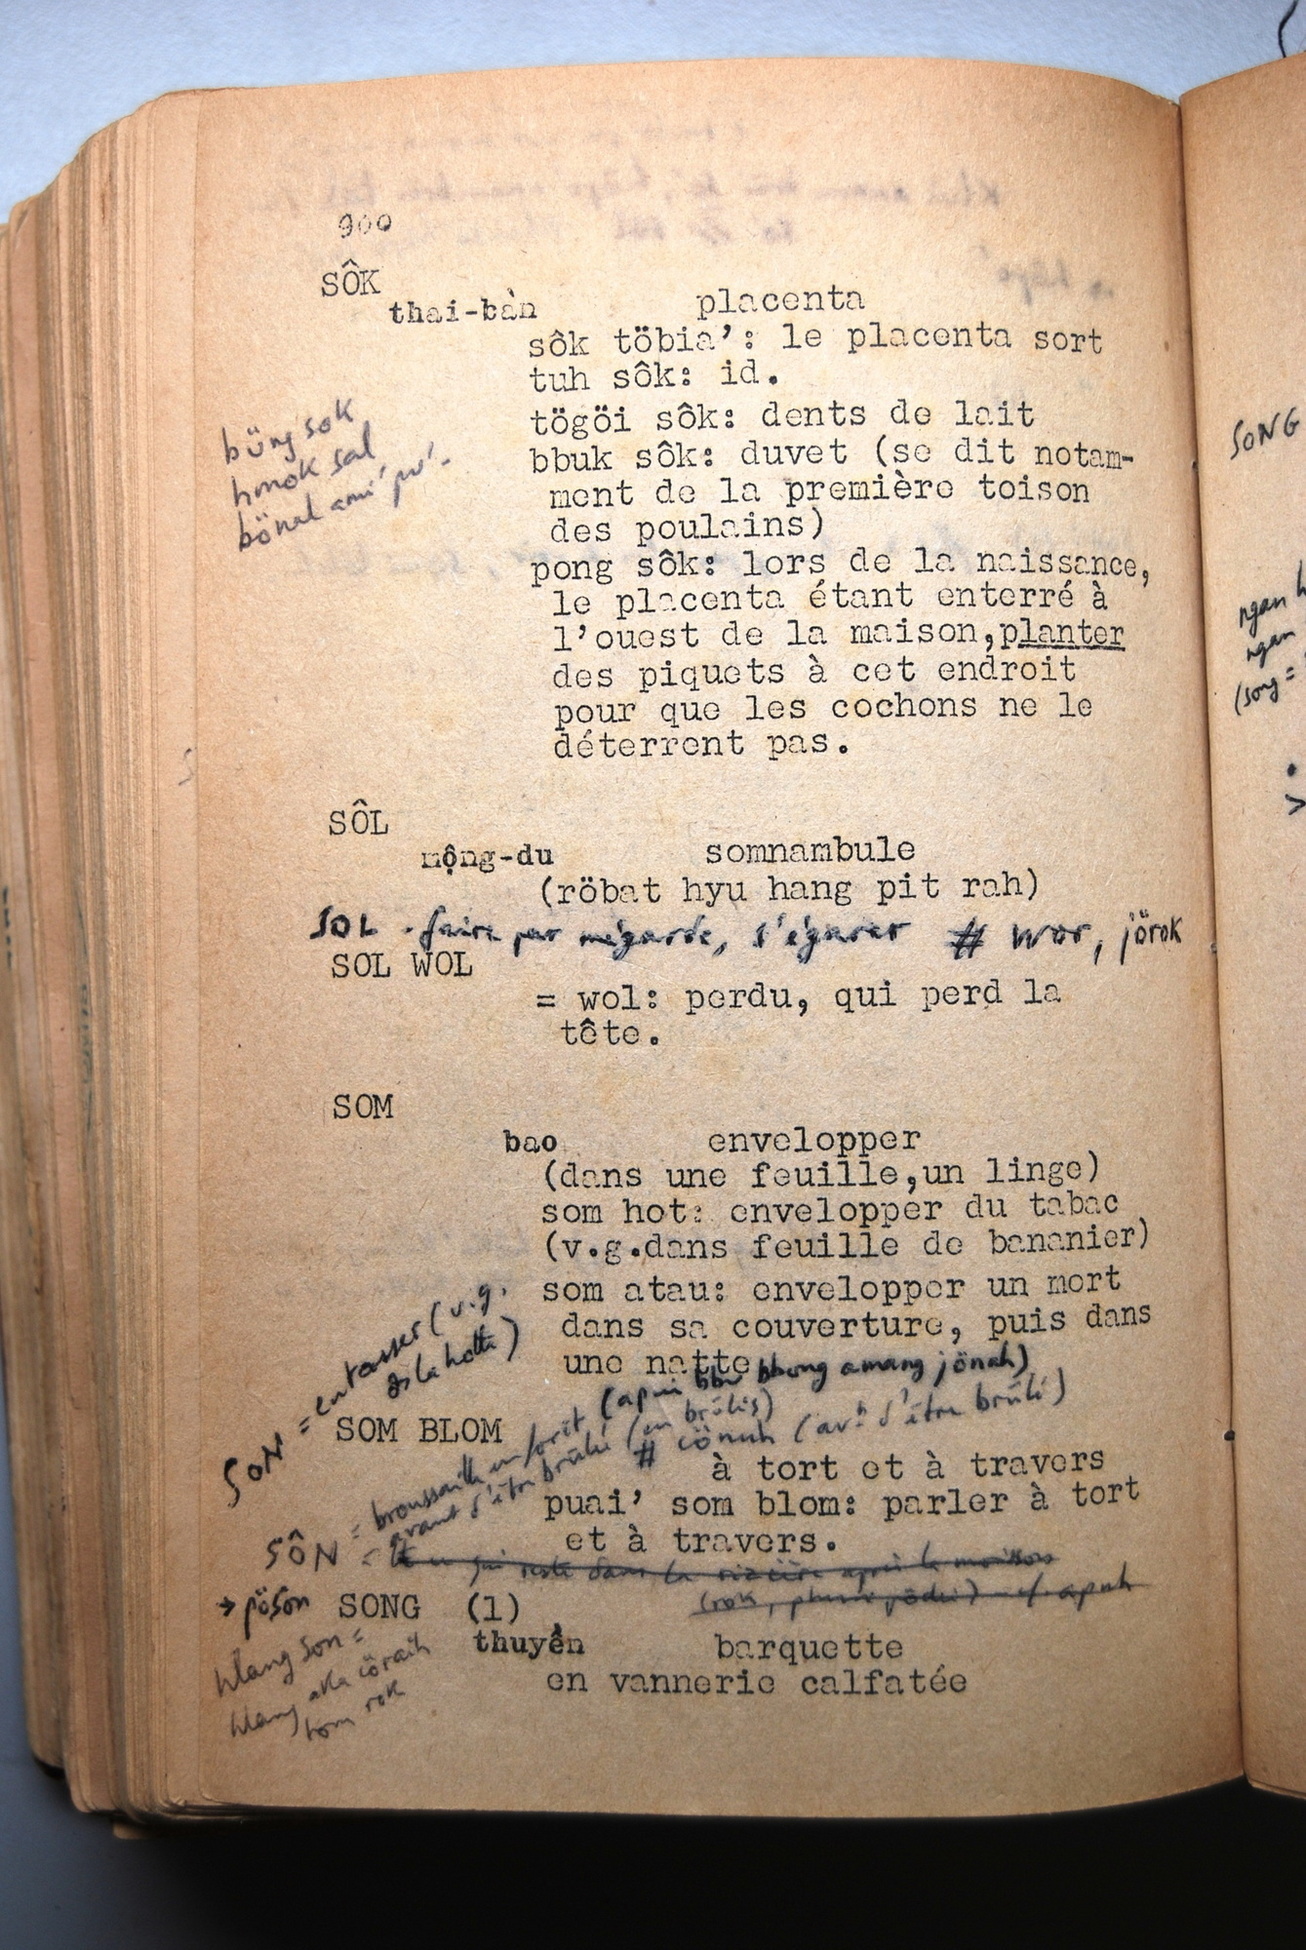 900
SÔK
thai-bàn placenta
sôk töbia’: le placenta sort
tuh sôk: id.
tögöi sôk: dents de lait
bbuk sôk: duvet (se dit notam-
ment de la première toison
des poulains)
pong sôk: lors de la naissance,
le placenta étant enterré à
l’ouest de la maison,planter
des piquets à cet endroit
pour que les cochons ne le
déterrent pas.
bŭng sok
hmok sal
bönal
SÔL
mộng-du somnambule
(röbat hyu hang pit rah)
SOL - faire par mégarde, s'égarer # wor, jörok
SOL WOL
= wol: perdu, qui perd la
tête.
SOM
bao envelopper
(dans une feuille,un linge)
som hot: envelopper du tabac
(v.g.dans feuille de bananier)
som atau: envelopper un mort
dans sa couverture, puis dans
une natte
SON = entasser (v.g.
ds la hotte)
SOM BLOM
à tort et à travers
puai’ som blom: parler à tort
et à travers.
SÔN = broussaille en forêt (apui bbu bbong amang jönah)
= avant d'être brûlé (en brûlis)
# cönuh (avt d'être brûlé)
qui reste dans la rizière après la moisson
→ pöson
SONG (1)
thuyền barquette
en vannerie calfatée
hlang son =
hlang aka cöraih
rok
SONG
ngan
ngan
(song =